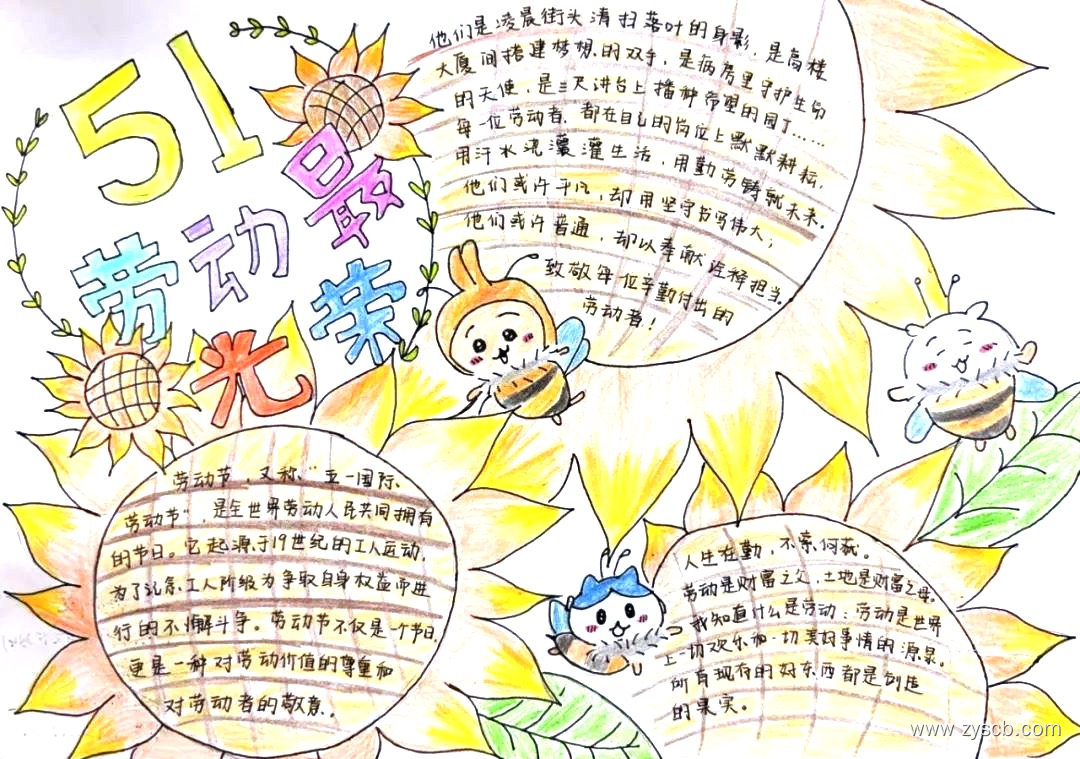 51
劳动最
光荣
他们是凌晨街头清扫落叶的身影，是高楼
大厦间搭建梦想的双手，是病房里守护生命
的天使，是三尺讲台上播种希望的园丁……
每一位劳动者，都在自己的岗位上默默耕耘，
用汗水浇灌灌生活，用勤劳铸就未来。
他们或许平凡，却用坚守书写伟大；
他们或许普通，却以奉献诠释担当。
致敬每一位辛勤付出的
劳动者！
劳动节，又称“五一国际
劳动节”，是全世界劳动人民共同拥有
的节日。它起源于19世纪的工人运动，
为了纪念工人阶级为争取自身权益而进
行的不懈斗争。劳动节不仅是一个节日，
更是一种对劳动价值的尊重和
对劳动者的敬意。
人生在勤，不索何获。
劳动是财富之父，土地是财富之母。
我知道什么是劳动：劳动是世界
上一切欢乐和一切美好事情的源泉。
所有现存的好东西都是创造
的果实。
www.zyscb.com